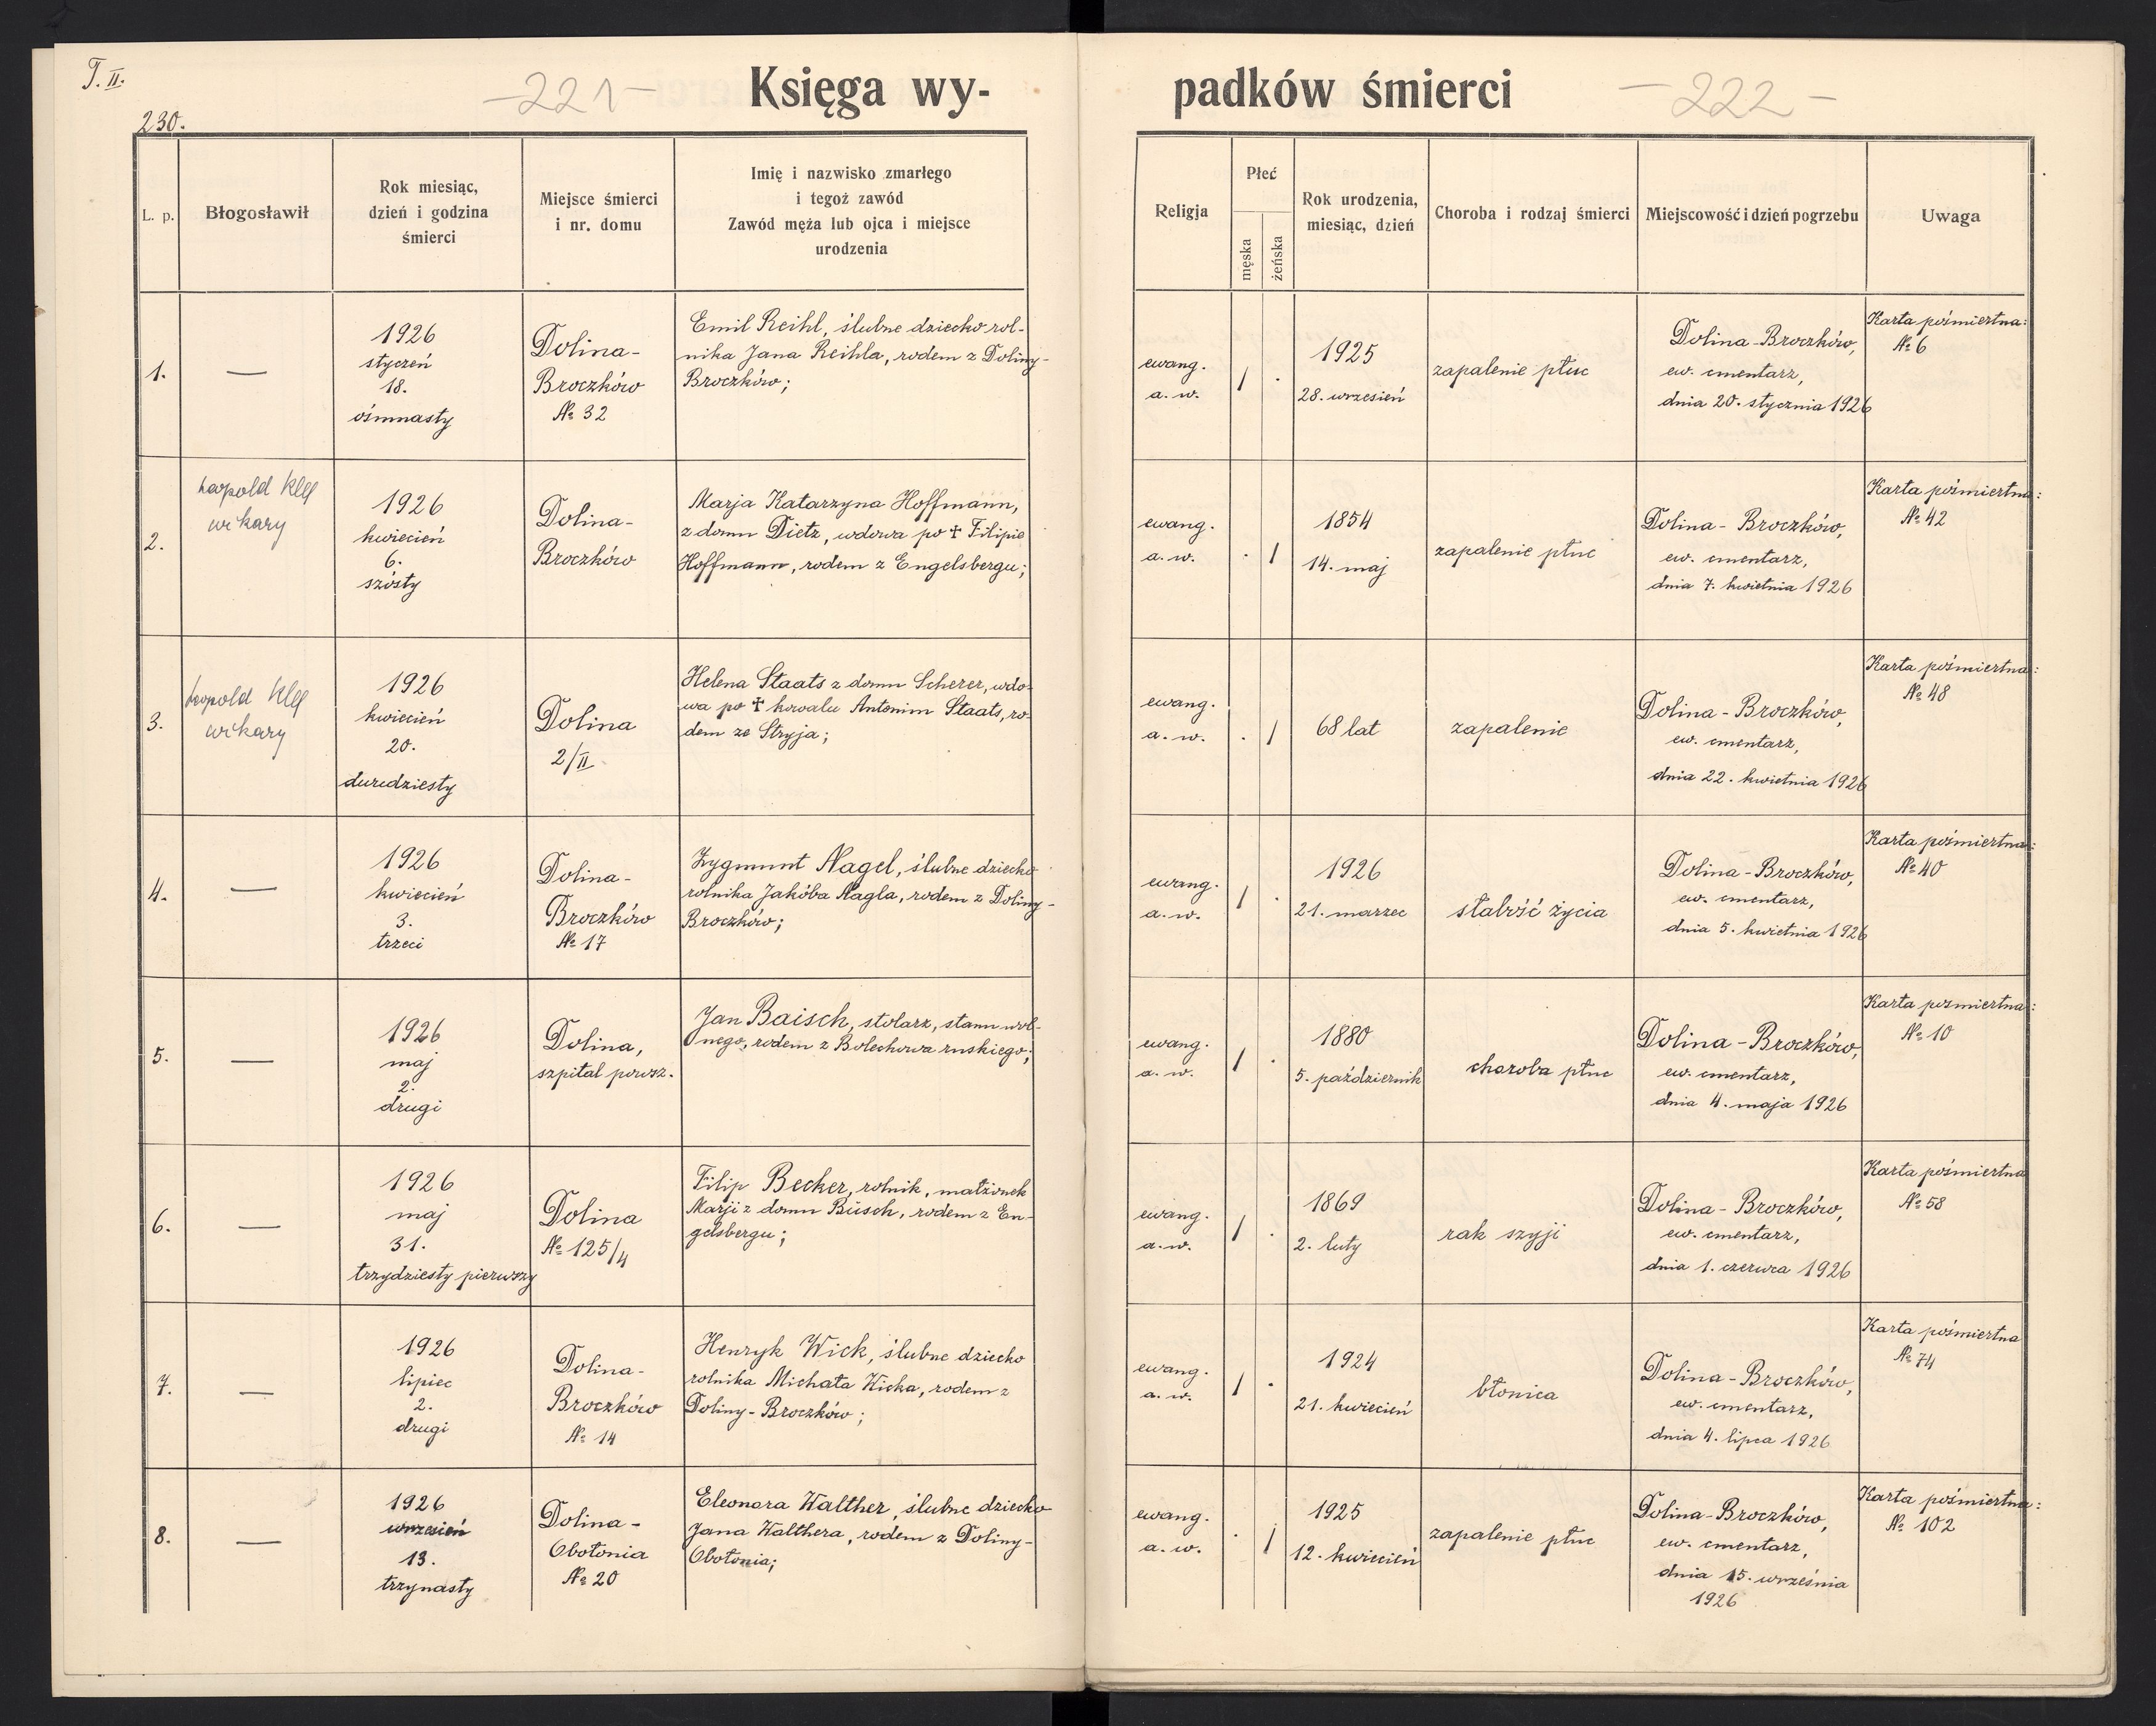 T. II.
230.
-221-
Księga wy-
padków śmierci
-222-
L. p.
Błogosławił
Rok miesiąc,
dzień i godzina
śmierci
Miejsce śmierci
i nr. domu
Imię i nazwisko zmarłego
i tegoż zawód
Zawód męża lub ojca i miejsce
urodzenia
Religja
Płeć
męska
żeńska
Rok urodzenia,
miesiąc, dzień
Choroba i rodzaj śmierci
Miejscowość i dzień pogrzebu
Uwaga
1.
—
1926
styczeń
18.
ośmnasty
Dolina-
Broczków
№ 32
Emil Reihl, ślubne dziecko rol-
nika Jana Reihla, rodem z Doliny-
Broczków;
ewang.
a. w.
/ .
1925
28. wrzesień
zapalenie płuc
Dolina-Broczków,
ew. cmentarz,
dnia 20. stycznia 1926
Karta pośmiertna:
№ 6
2.
Leopold Klee
wikary
1926
kwiecień
6.
szósty
Dolina-
Broczków
Marja Katarzyna Hoffmann,
z domu Dietz, wdowa po ✝ Filipie
Hoffmann, rodem z Engelsbergu;
ewang.
a. w.
. /
1854
14. maj
zapalenie płuc
Dolina-Broczków,
ew. cmentarz,
dnia 7. kwietnia 1926
Karta pośmiertna:
№ 42
3.
Leopold Klee
wikary
1926
kwiecień
20.
dwudziesty
Dolina
2/II
Helena Staats z domu Scherer, wdo-
wa po ✝ kowalu Antonim Staats, ro-
dem ze Stryja;
ewang.
a. w.
. /
68 lat
zapalenie
Dolina-Broczków,
ew. cmentarz,
dnia 22. kwietnia 1926
Karta pośmiertna:
№ 48
4.
—
1926
kwiecień
3.
trzeci
Dolina-
Broczków
№ 17
Zygmunt Nagel, ślubne dziecko
rolnika Jakóba Nagla, rodem z Doliny-
Broczków;
ewang.
a. w.
/ .
1926
21. marzec
słabość życia
Dolina-Broczków,
ew. cmentarz,
dnia 5. kwietnia 1926
Karta pośmiertna:
№ 40
5.
—
1926
maj
2.
drugi
Dolina,
szpital powsz.
Jan Baisch, stolarz, stanu wol-
nego, rodem z Bolechowa ruskiego;
ewang.
a. w.
/ .
1880
5. październik
choroba płuc
Dolina-Broczków,
ew. cmentarz,
dnia 4. maja 1926
Karta pośmiertna:
№ 10
6.
—
1926
maj
31.
trzydziesty pierwszy
Dolina
№ 125/4
Filip Becker, rolnik, małżonek
Marji z domu Büsch, rodem z En-
gelsbergu;
ewang.
a. w.
/ .
1869
2. luty
rak szyji
Dolina-Broczków,
ew. cmentarz,
dnia 1. czerwca 1926
Karta pośmiertna
№ 58
7.
—
1926
lipiec
2.
drugi
Dolina-
Broczków
№ 14
Henryk Wick, ślubne dziecko
rolnika Michała Wicka, rodem z
Doliny-Broczków;
ewang.
a. w.
/ .
1924
21. kwiecień
błonica
Dolina-Broczków,
ew. cmentarz,
dnia 4. lipca 1926
Karta pośmiertna
№ 74
8.
—
1926
wrzesień
13.
trzynasty
Dolina-
Obołonia
№ 20
Eleonora Walther, ślubne dziecko
Jana Walthera, rodem z Doliny-
Obołonia;
ewang.
a. w.
. /
1925
12. kwiecień
zapalenie płuc
Dolina-Broczków,
ew. cmentarz,
dnia 15. września
1926
Karta pośmiertna:
№ 102